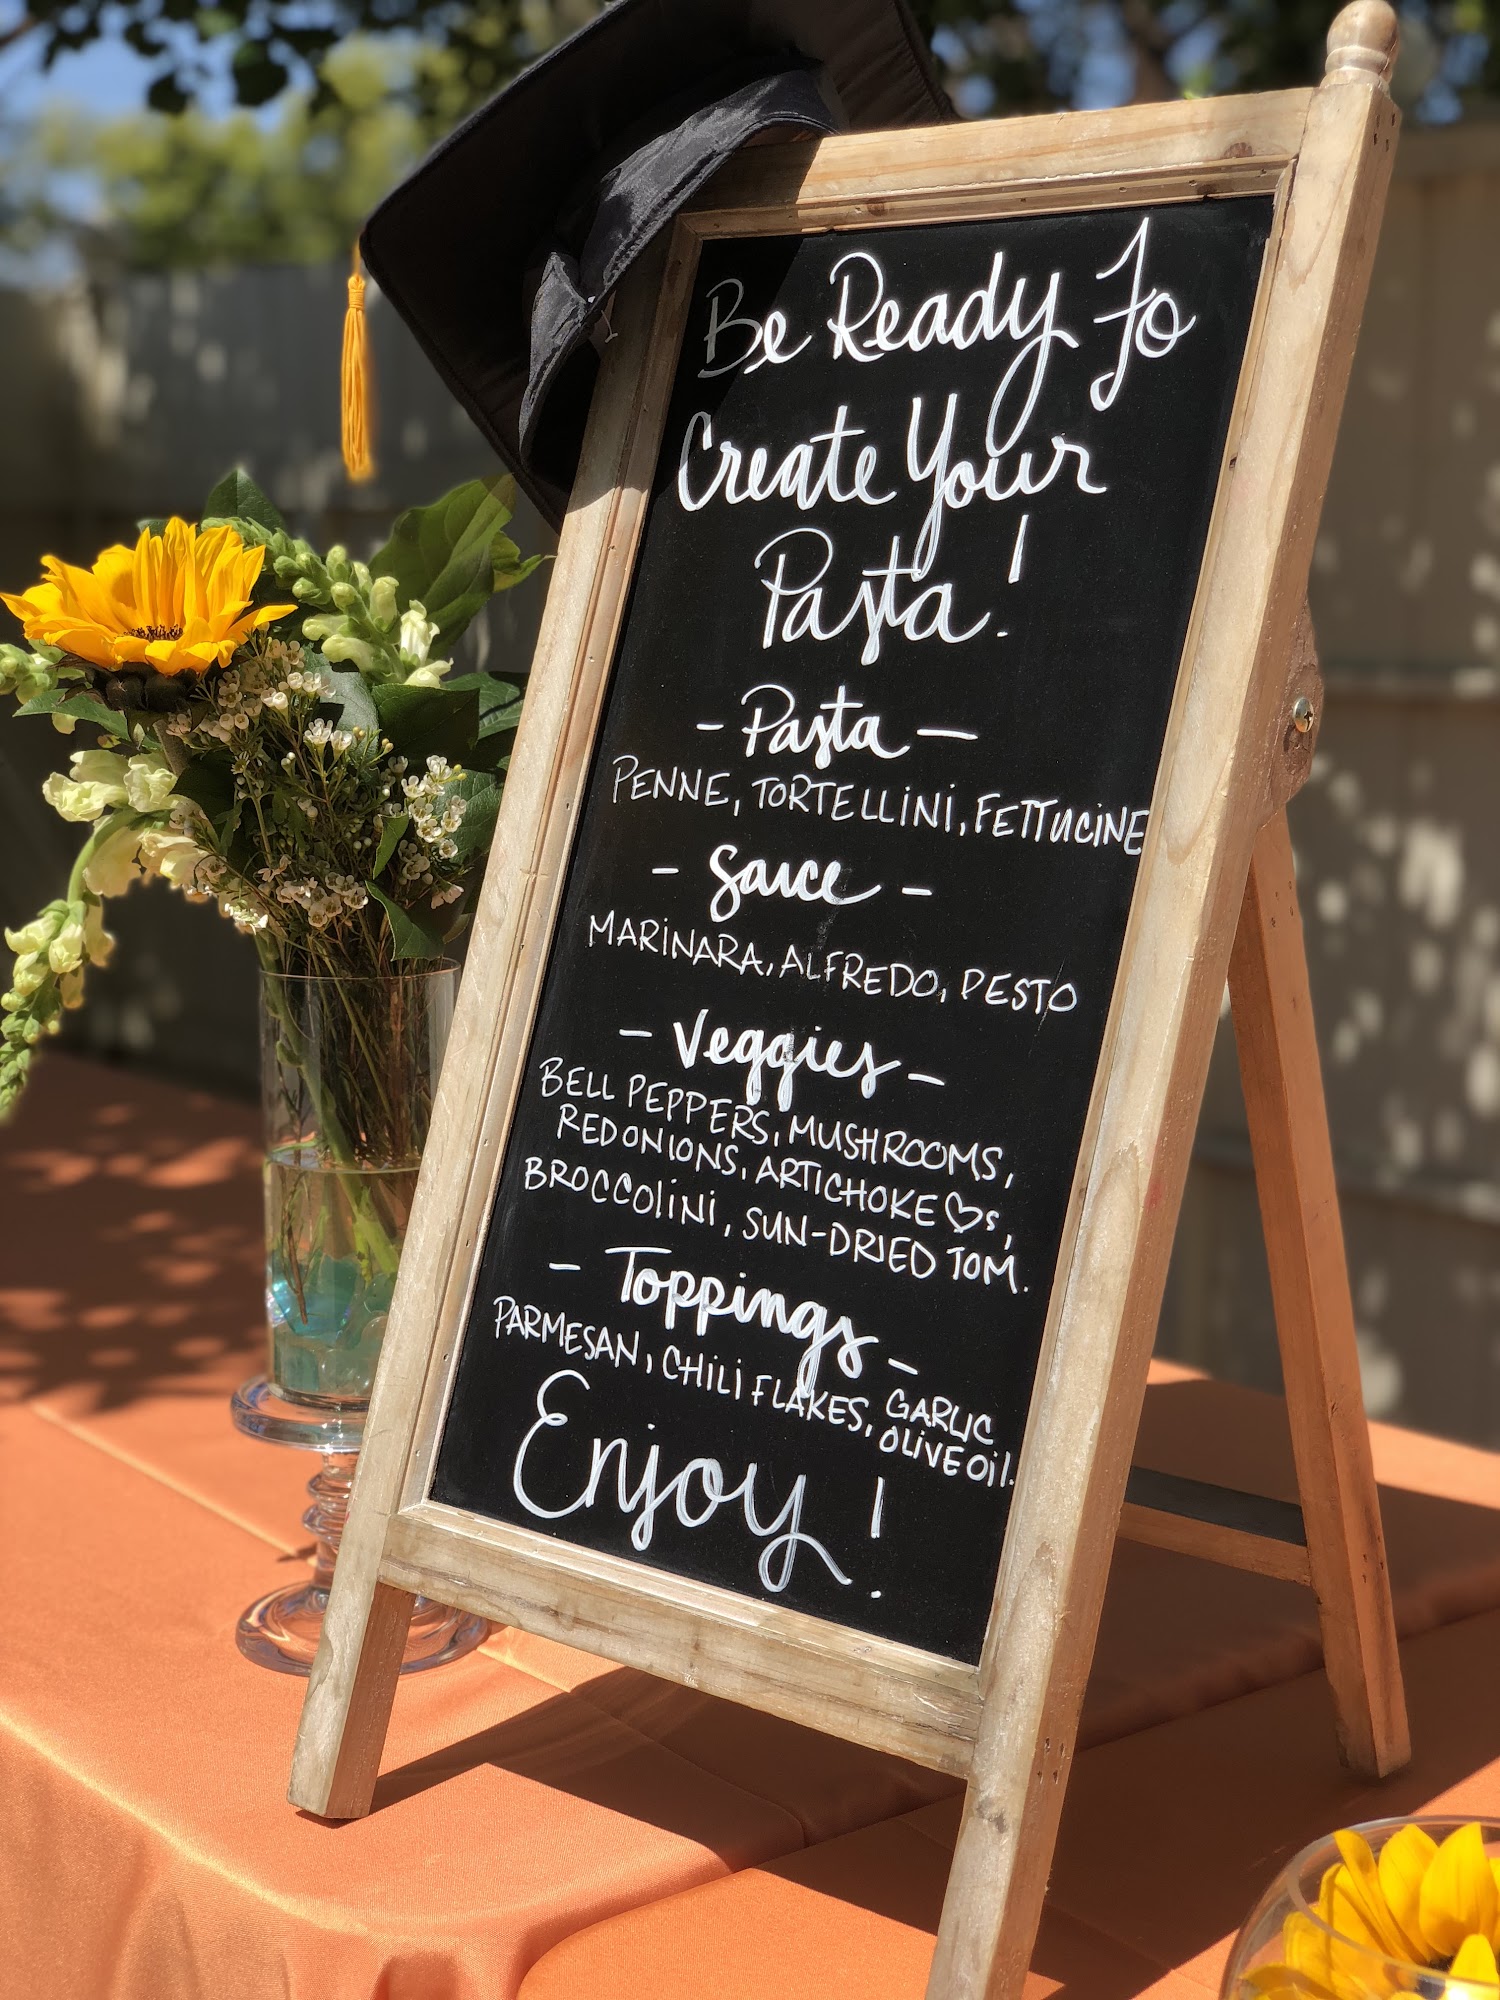 Be Ready To
Create Your
Pasta!
- Pasta -
PENNE, TORTELLINI, FETTUCINE
- Sauce -
MARINARA, ALFREDO, PESTO
- Veggies -
BELL PEPPERS, MUSHROOMS,
RED ONIONS, ARTICHOKE ♡s,
BROCCOLINI, SUN-DRIED TOM.
- Toppings -
PARMESAN, CHILI FLAKES, GARLIC
OLIVE OIL.
Enjoy!